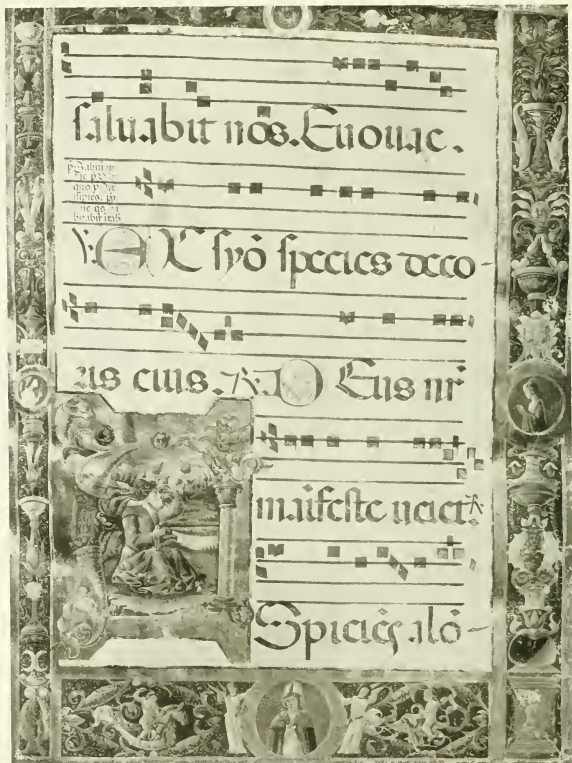 saluabit nos. Euouae.
℣. EX syō species deco-
ris eius. ℟. DEus nr̄
maifeste ueiet.
ASpiciēs a lō-